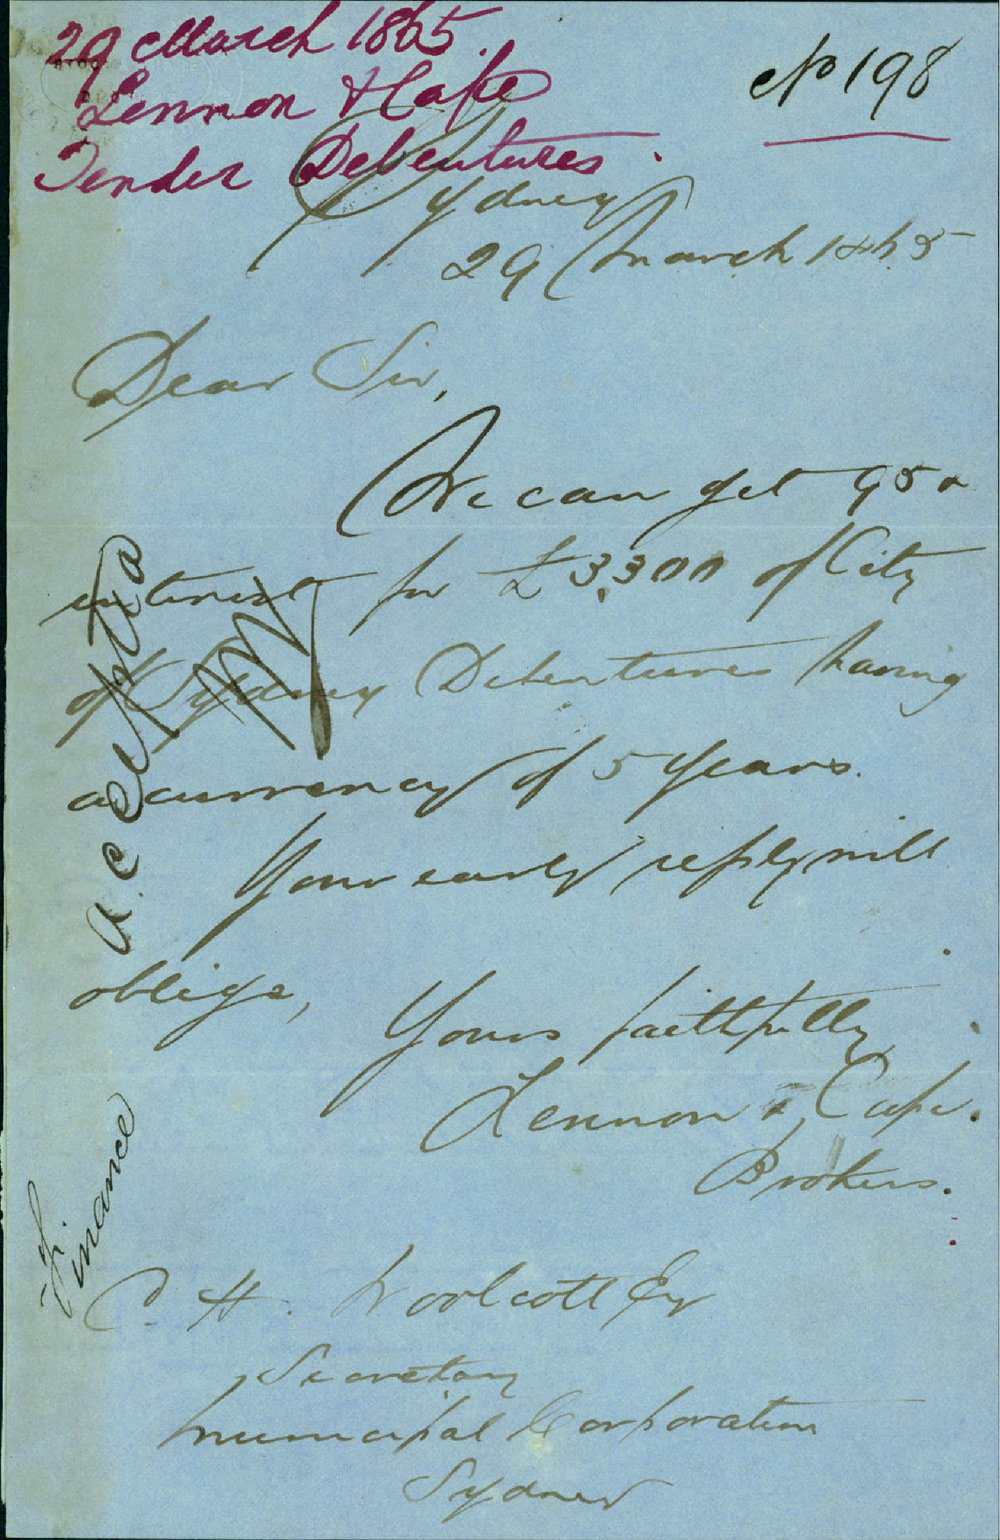 29 March 1865.
Lennon & Cape
Tender Debentures.
No 198
Sydney
29 March 1865
Dear Sir,
We can get 95 &
interest for £3,300 of City
of Sydney Debentures having
a currency of 5 years.
Your early reply will
oblige,
Yours faithfully
Lennon & Cape.
Brokers.
C. H. Woolcott Esq
Secretary
Municipal Corporation
Sydney
Finance